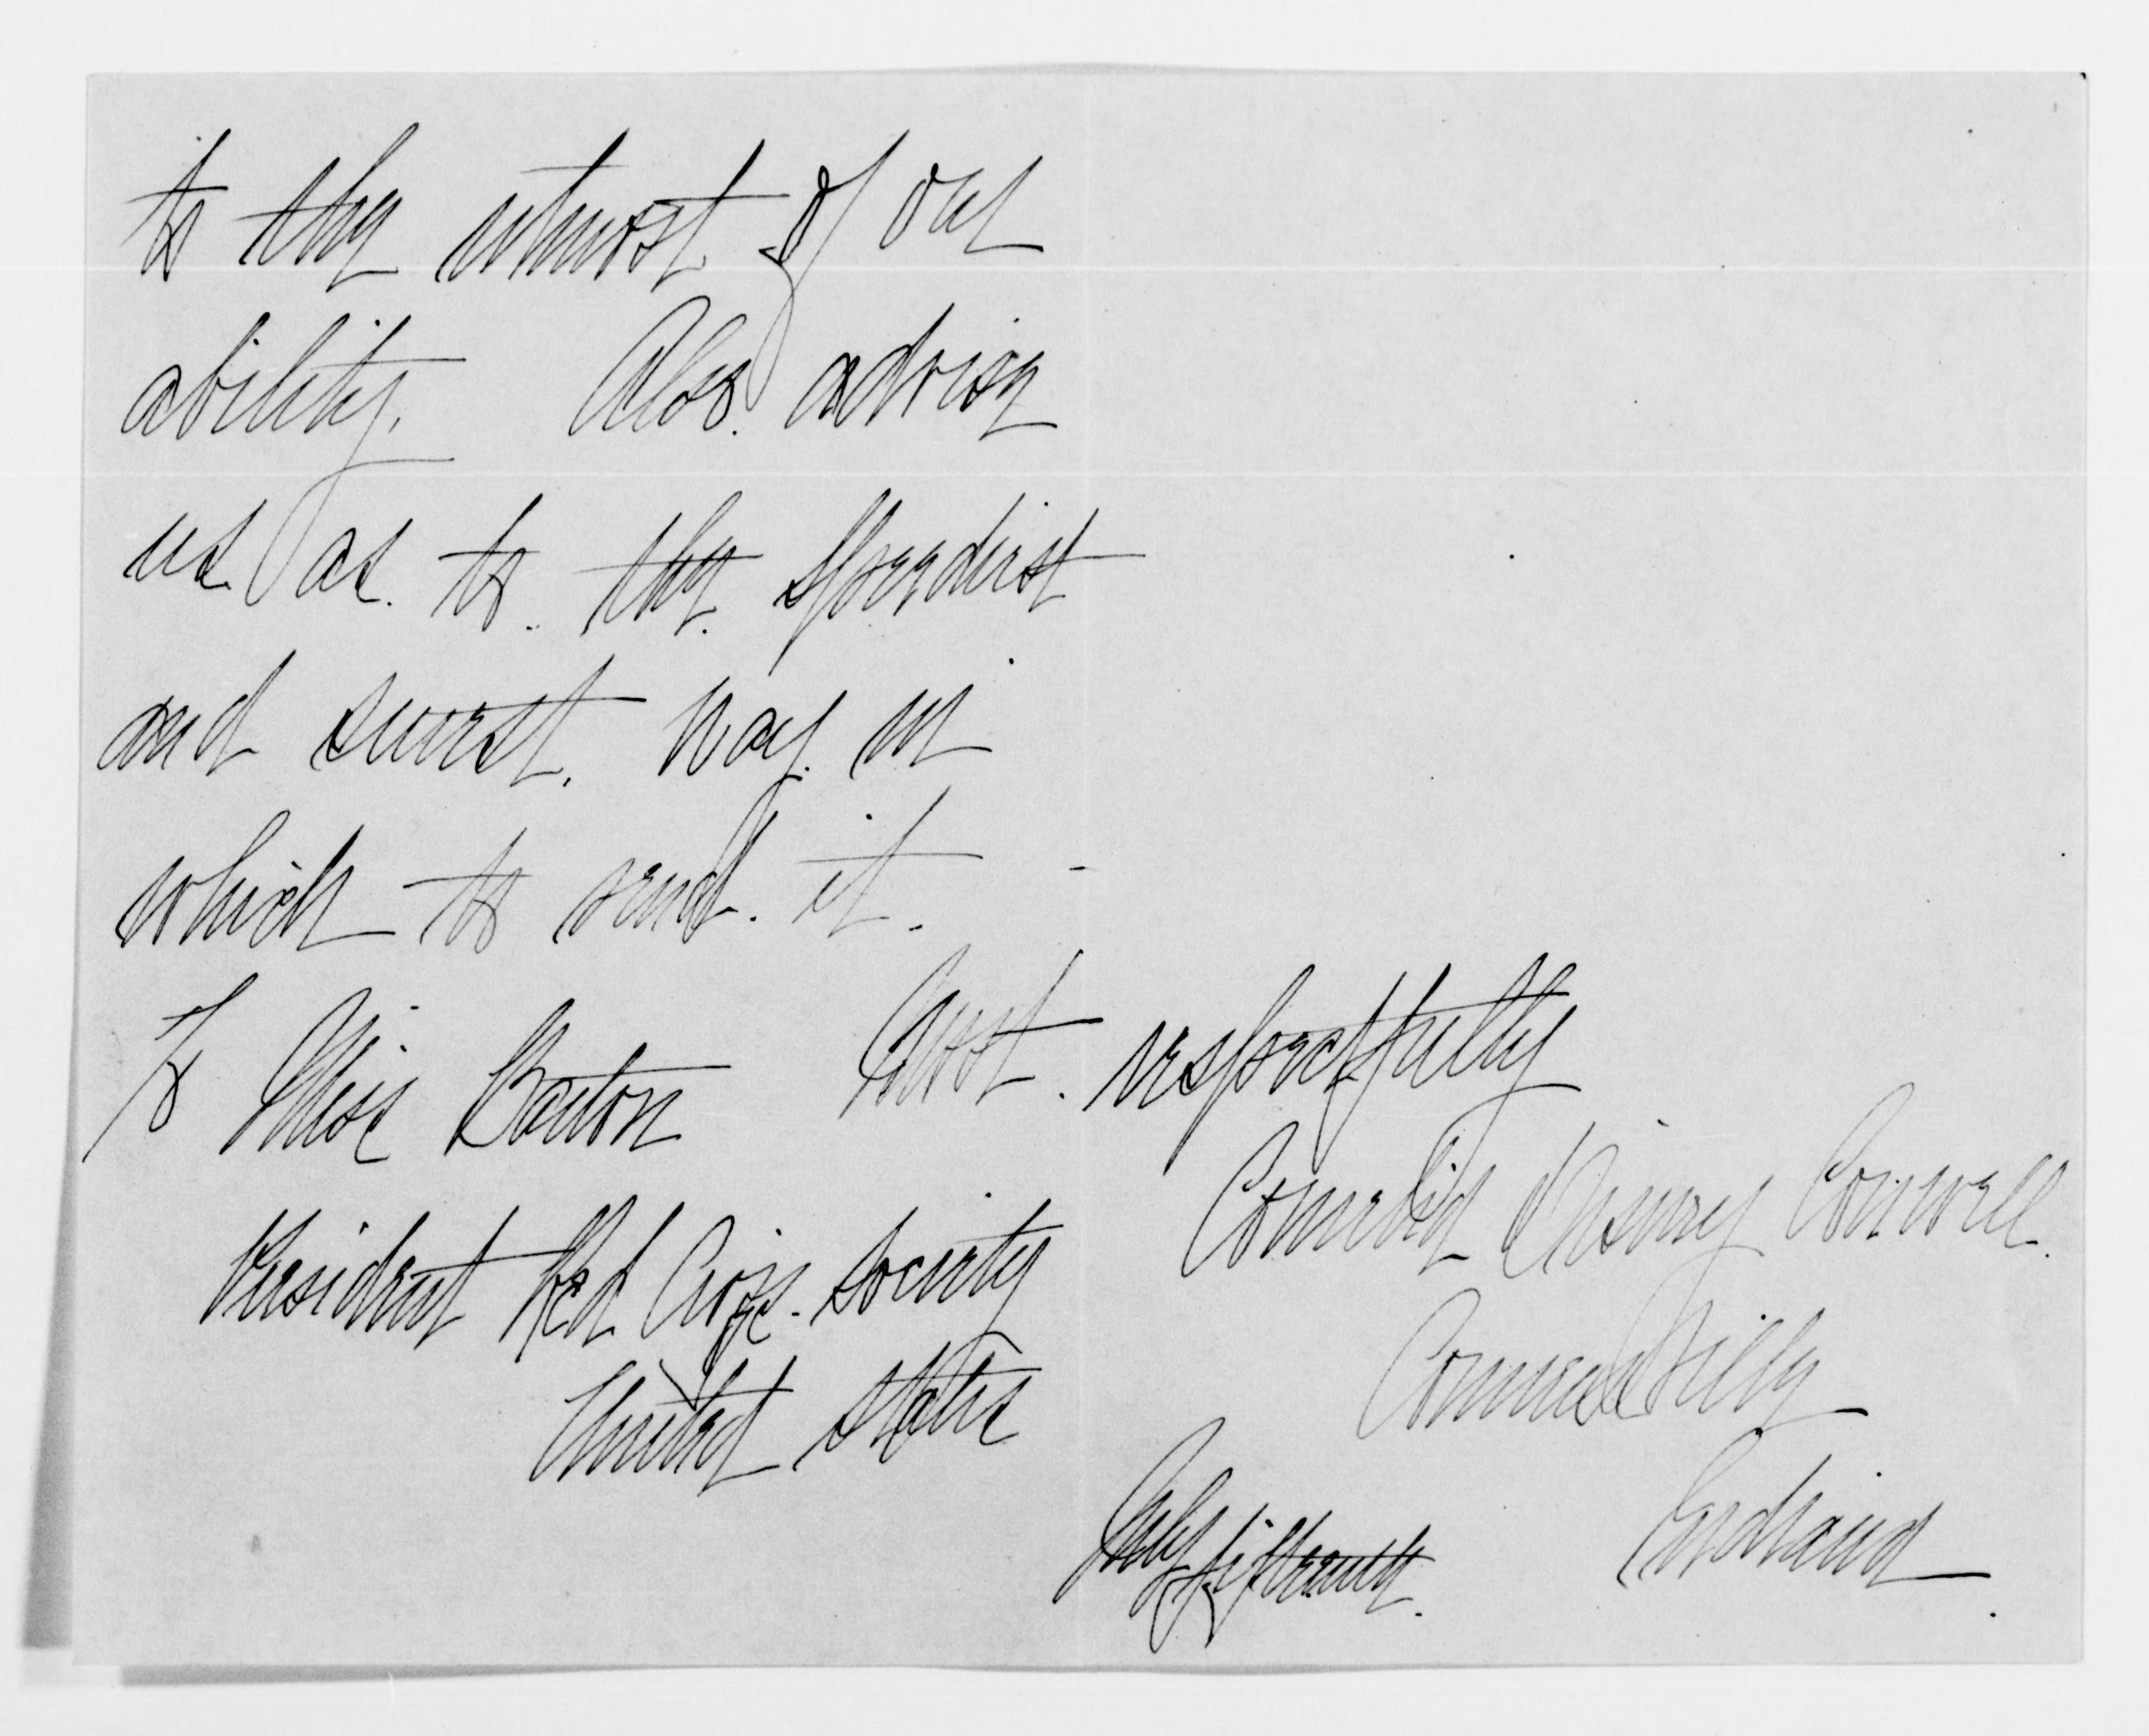 to the utmost of our
ability. Also. advise
us as. to. the. speediest
and surest. way. in
which to send. it.
Most. respectfully
To Miss Barton
President Red Cross. Society
United States
Conwell.
Connersville
Indiana.
July fifteenth.